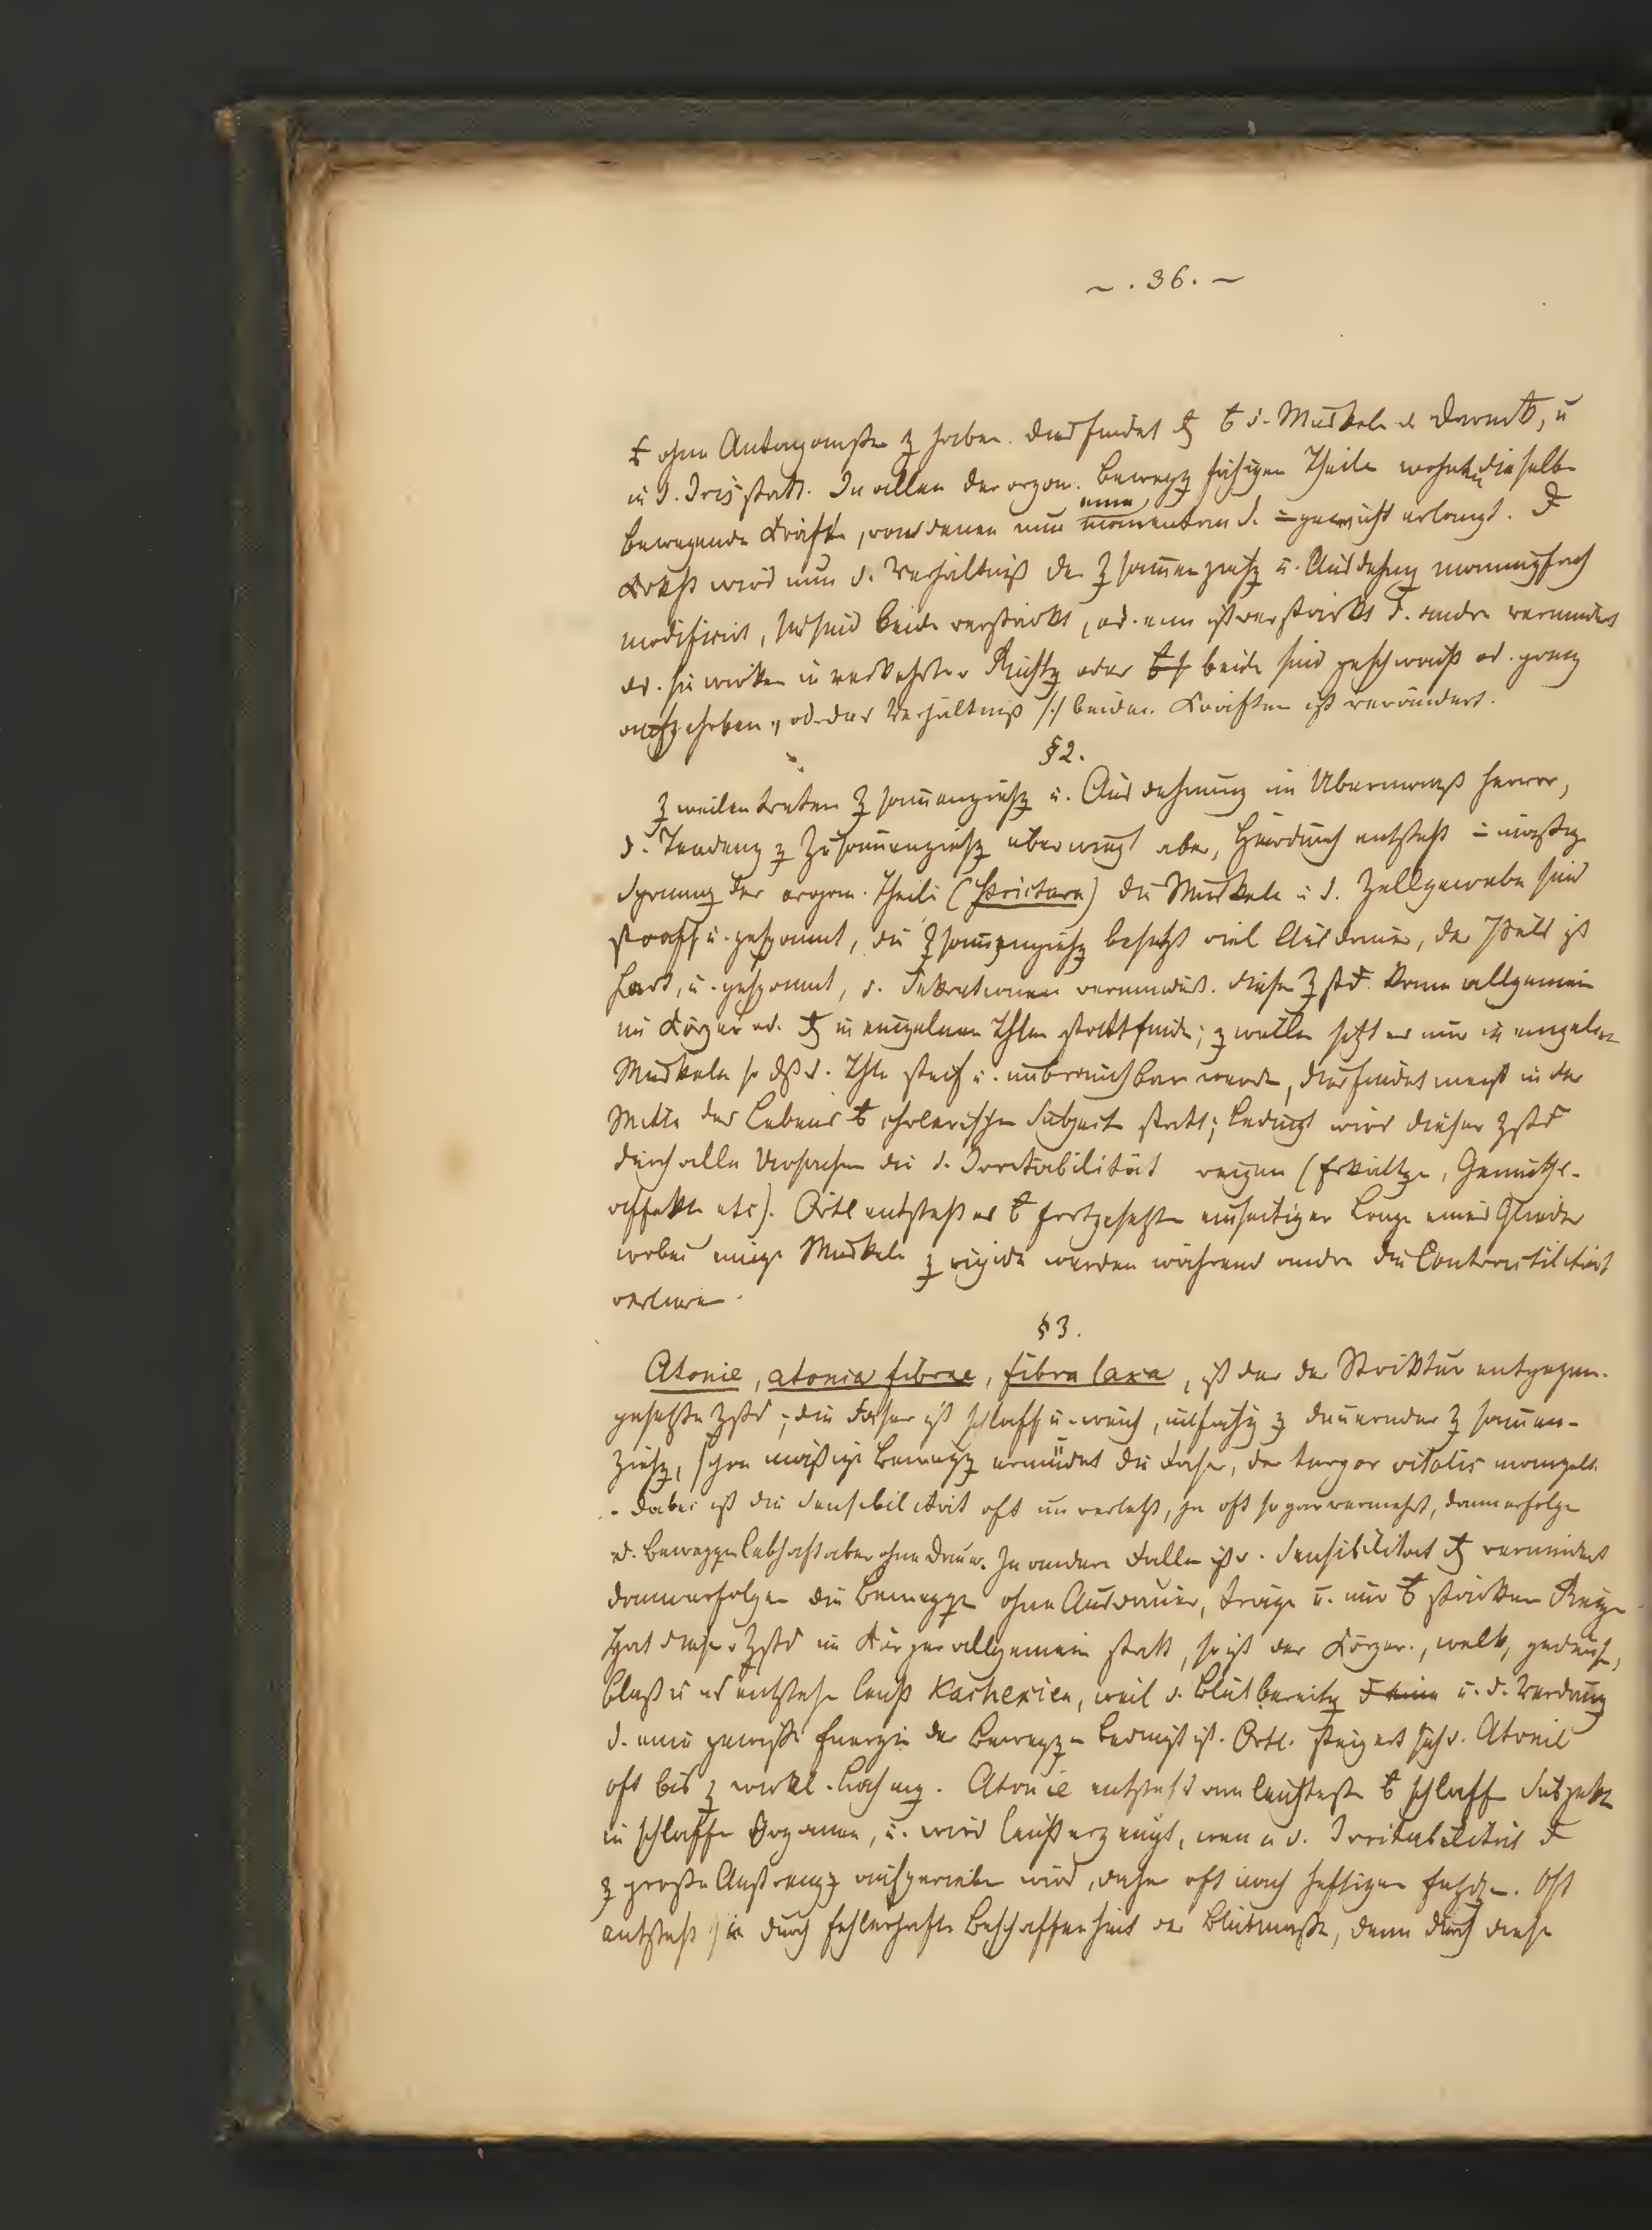 ~ . 36. ~
ohne Antagonisten z haben. Dies findet d. Muskeln u
in d. Iris statt. In allen der organ. Bewegg fähigen Theile wohnen dieselbe
eine
bewegende Kräfte, von denen nur momentan d. =gewicht erlangt.
Krkht wird nun d. Verhältniß der Zsammenziehg u. Ausdehng mannigfach
modificirt, sind beide verstärkt, od. eine ist verstärkt d. andre vermindert
od. sie wirken in verkehrter Richtg oder beide sind geschwächt od. ganz
aufgehoben, od. das Verhältniß beider Kräften ist verändert.
§2.
Zweilen treten Zsammenziehg u. Ausdehnung im Übermaaß hervor,
d. Tendenz z Zusammenziehg überwiegt aber, hierdurch entsteht
Spannung der organ. Theile (Strictura) die Muskeln u d. Zellgewebe sind
straff u. gespannt, die Zsammenziehg besitzt viel Ausdauer, der Puls ist
hart, u. gespannt, d. Sekretionen vermindert. Dieser Zstd. kann allgemein
im Körper od. in einzelnen Thlen stattfinden; zweilen sitzt er nur in einzelnen
Muskeln so dß d. Thle steif u. unbrauchbar werden, dies findet meist in der
Mitte des Lebens cholerischen Subject statt; bedingt wird dieser Zstd
durch alle Ursachen die d. Irritabilität reizen (Erkältgn, Gemüths-
affekte etc). Örtl entsteht er fortgesetzter einseitiger Lage eines Gliedes
wobei einige Muskeln z rigide werden während andre die Contractilität
verlieren.
§3.
Atonie, atonia fibrae, fibra laxa, ist der der Striktur entgegen-
gesetzte Zstd; die Faser ist schlaff u. weich, unfähig z dauernder Zsammen-
ziehg, schon mäßige Bewegg ermüdet die Faser, der turgor vitalis mangelt.
- Dabei ist die Sensibilität oft unverletzt, ja oft sogar vermehrt, dann erfolgen
d. Beweggen lebhaft aber ohne Dauer. In andern Fällen ist d. Sensibilität vermindert
dann erfolgen die Beweggn ohne Ausdauer, träge u. nur starken Reizen
Hat dieser Zstd im Körper allgemein statt, so ist der Körper, welk, gedunsen,
blaß u es entstehen leicht Kachexien, weil d. Blutbereitg u. d. Verdauung
d. eine gewisse Energie der Beweggn bedingt ist. Örtl. steigert sich d. Atonie
oft bis z wirkl. Lähmg. Atonie entsteht am leichtesten schlaffen Subjekten
in schlaffen Organen, u. wird leicht erzeugt, wenn d. Irritabilität
z große Anstrengg aufgerieben wird, daher oft nach heftigen Oft
entsteht sie durch fehlerhafte Beschaffenheit der Blutmasse, denn durch diese